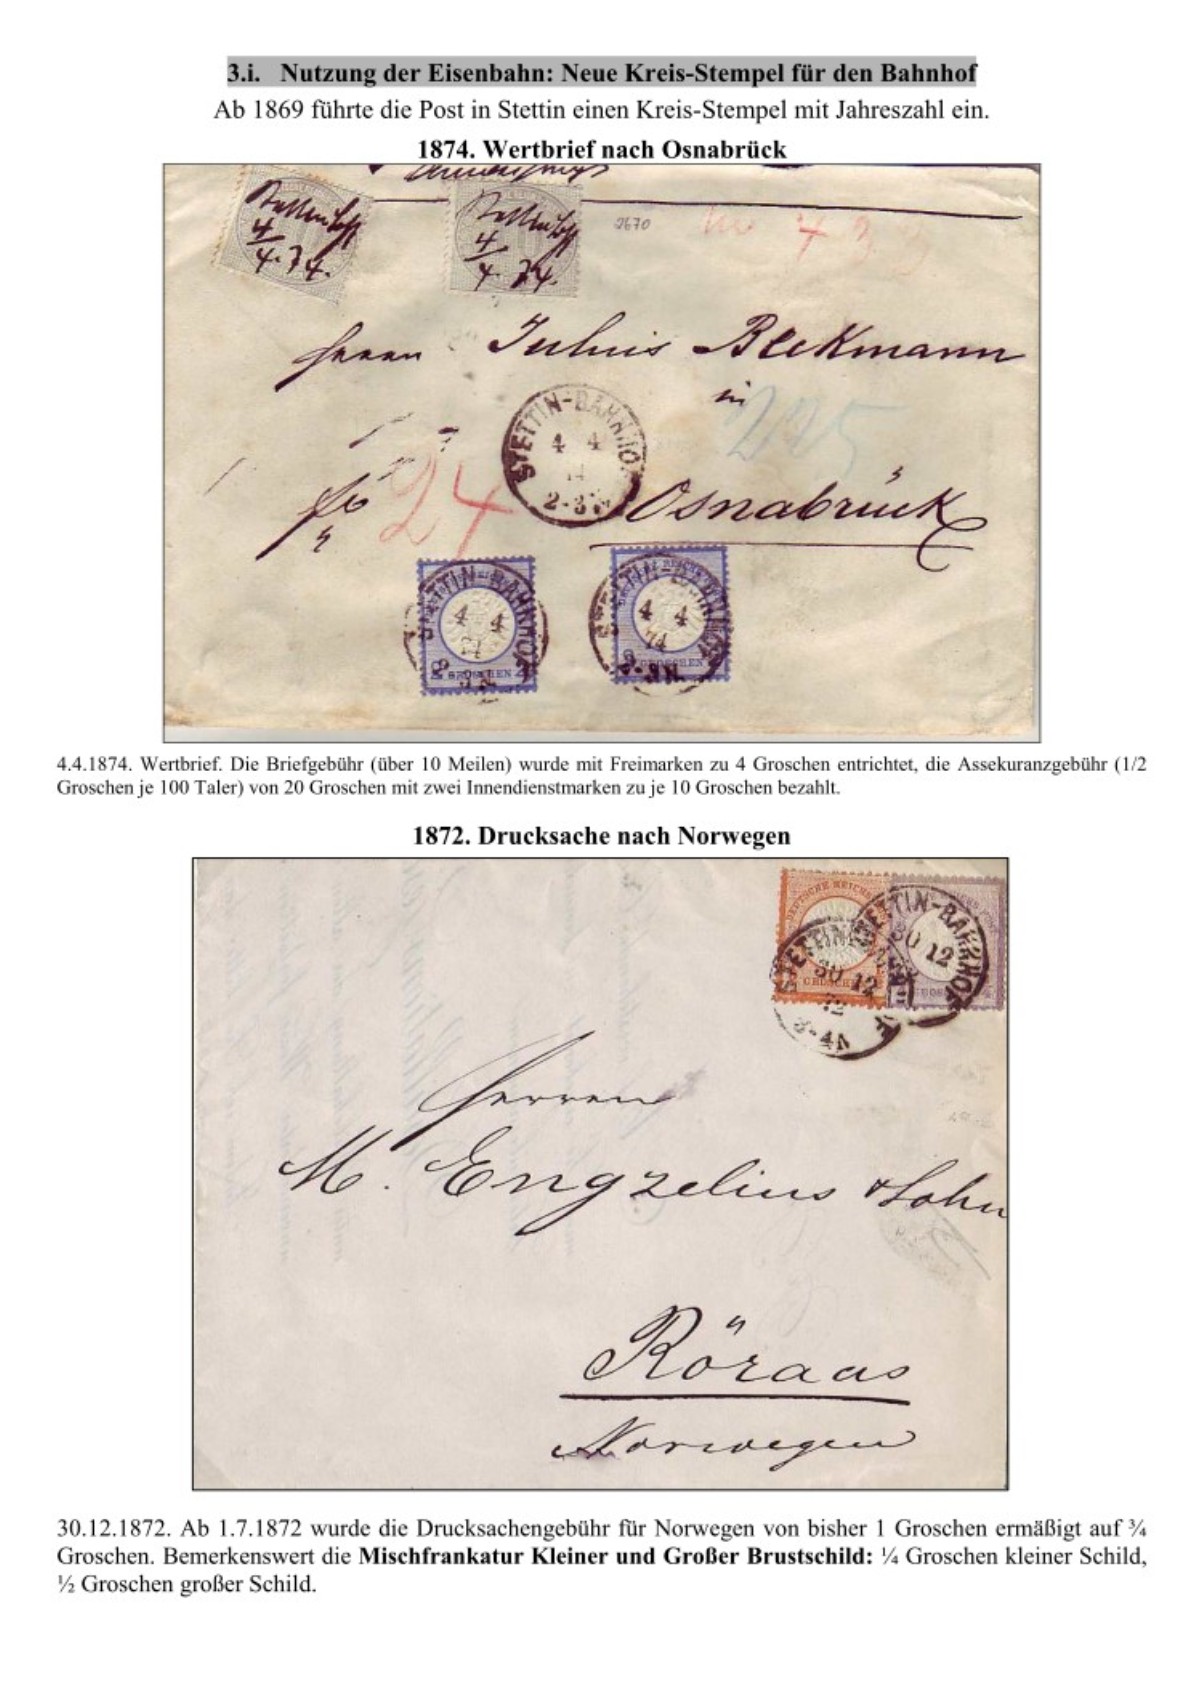 3.i. Nutzung der Eisenbahn: Neue Kreis-Stempel für den Bahnhof
Ab 1869 führte die Post in Stettin einen Kreis-Stempel mit Jahreszahl ein.
1874. Wertbrief nach Osnabrück
4/4.74.
4/4.74.
2670
Herrn Julius Beckmann
in
225
24
STETTIN-BAHNHOF
4 4
74
2-3N
Osnabrück
STETTIN-BAHNHOF
4 4
74
2 GROSCHEN 2
STETTIN-BAHNHOF
4 4
74
2 GROSCHEN
4.4.1874. Wertbrief. Die Briefgebühr (über 10 Meilen) wurde mit Freimarken zu 4 Groschen entrichtet, die Assekuranzgebühr (1/2
Groschen je 100 Taler) von 20 Groschen mit zwei Innendienstmarken zu je 10 Groschen bezahlt.
1872. Drucksache nach Norwegen
DEUTSCHE REICHS
STETTIN-BAHNHOF
30 12
STETTIN
30 12
72
3-4N
Herren
M. Engzelius & Sohn
Röraas
Norwegen
30.12.1872. Ab 1.7.1872 wurde die Drucksachengebühr für Norwegen von bisher 1 Groschen ermäßigt auf ¾
Groschen. Bemerkenswert die Mischfrankatur Kleiner und Großer Brustschild: ¼ Groschen kleiner Schild,
½ Groschen großer Schild.